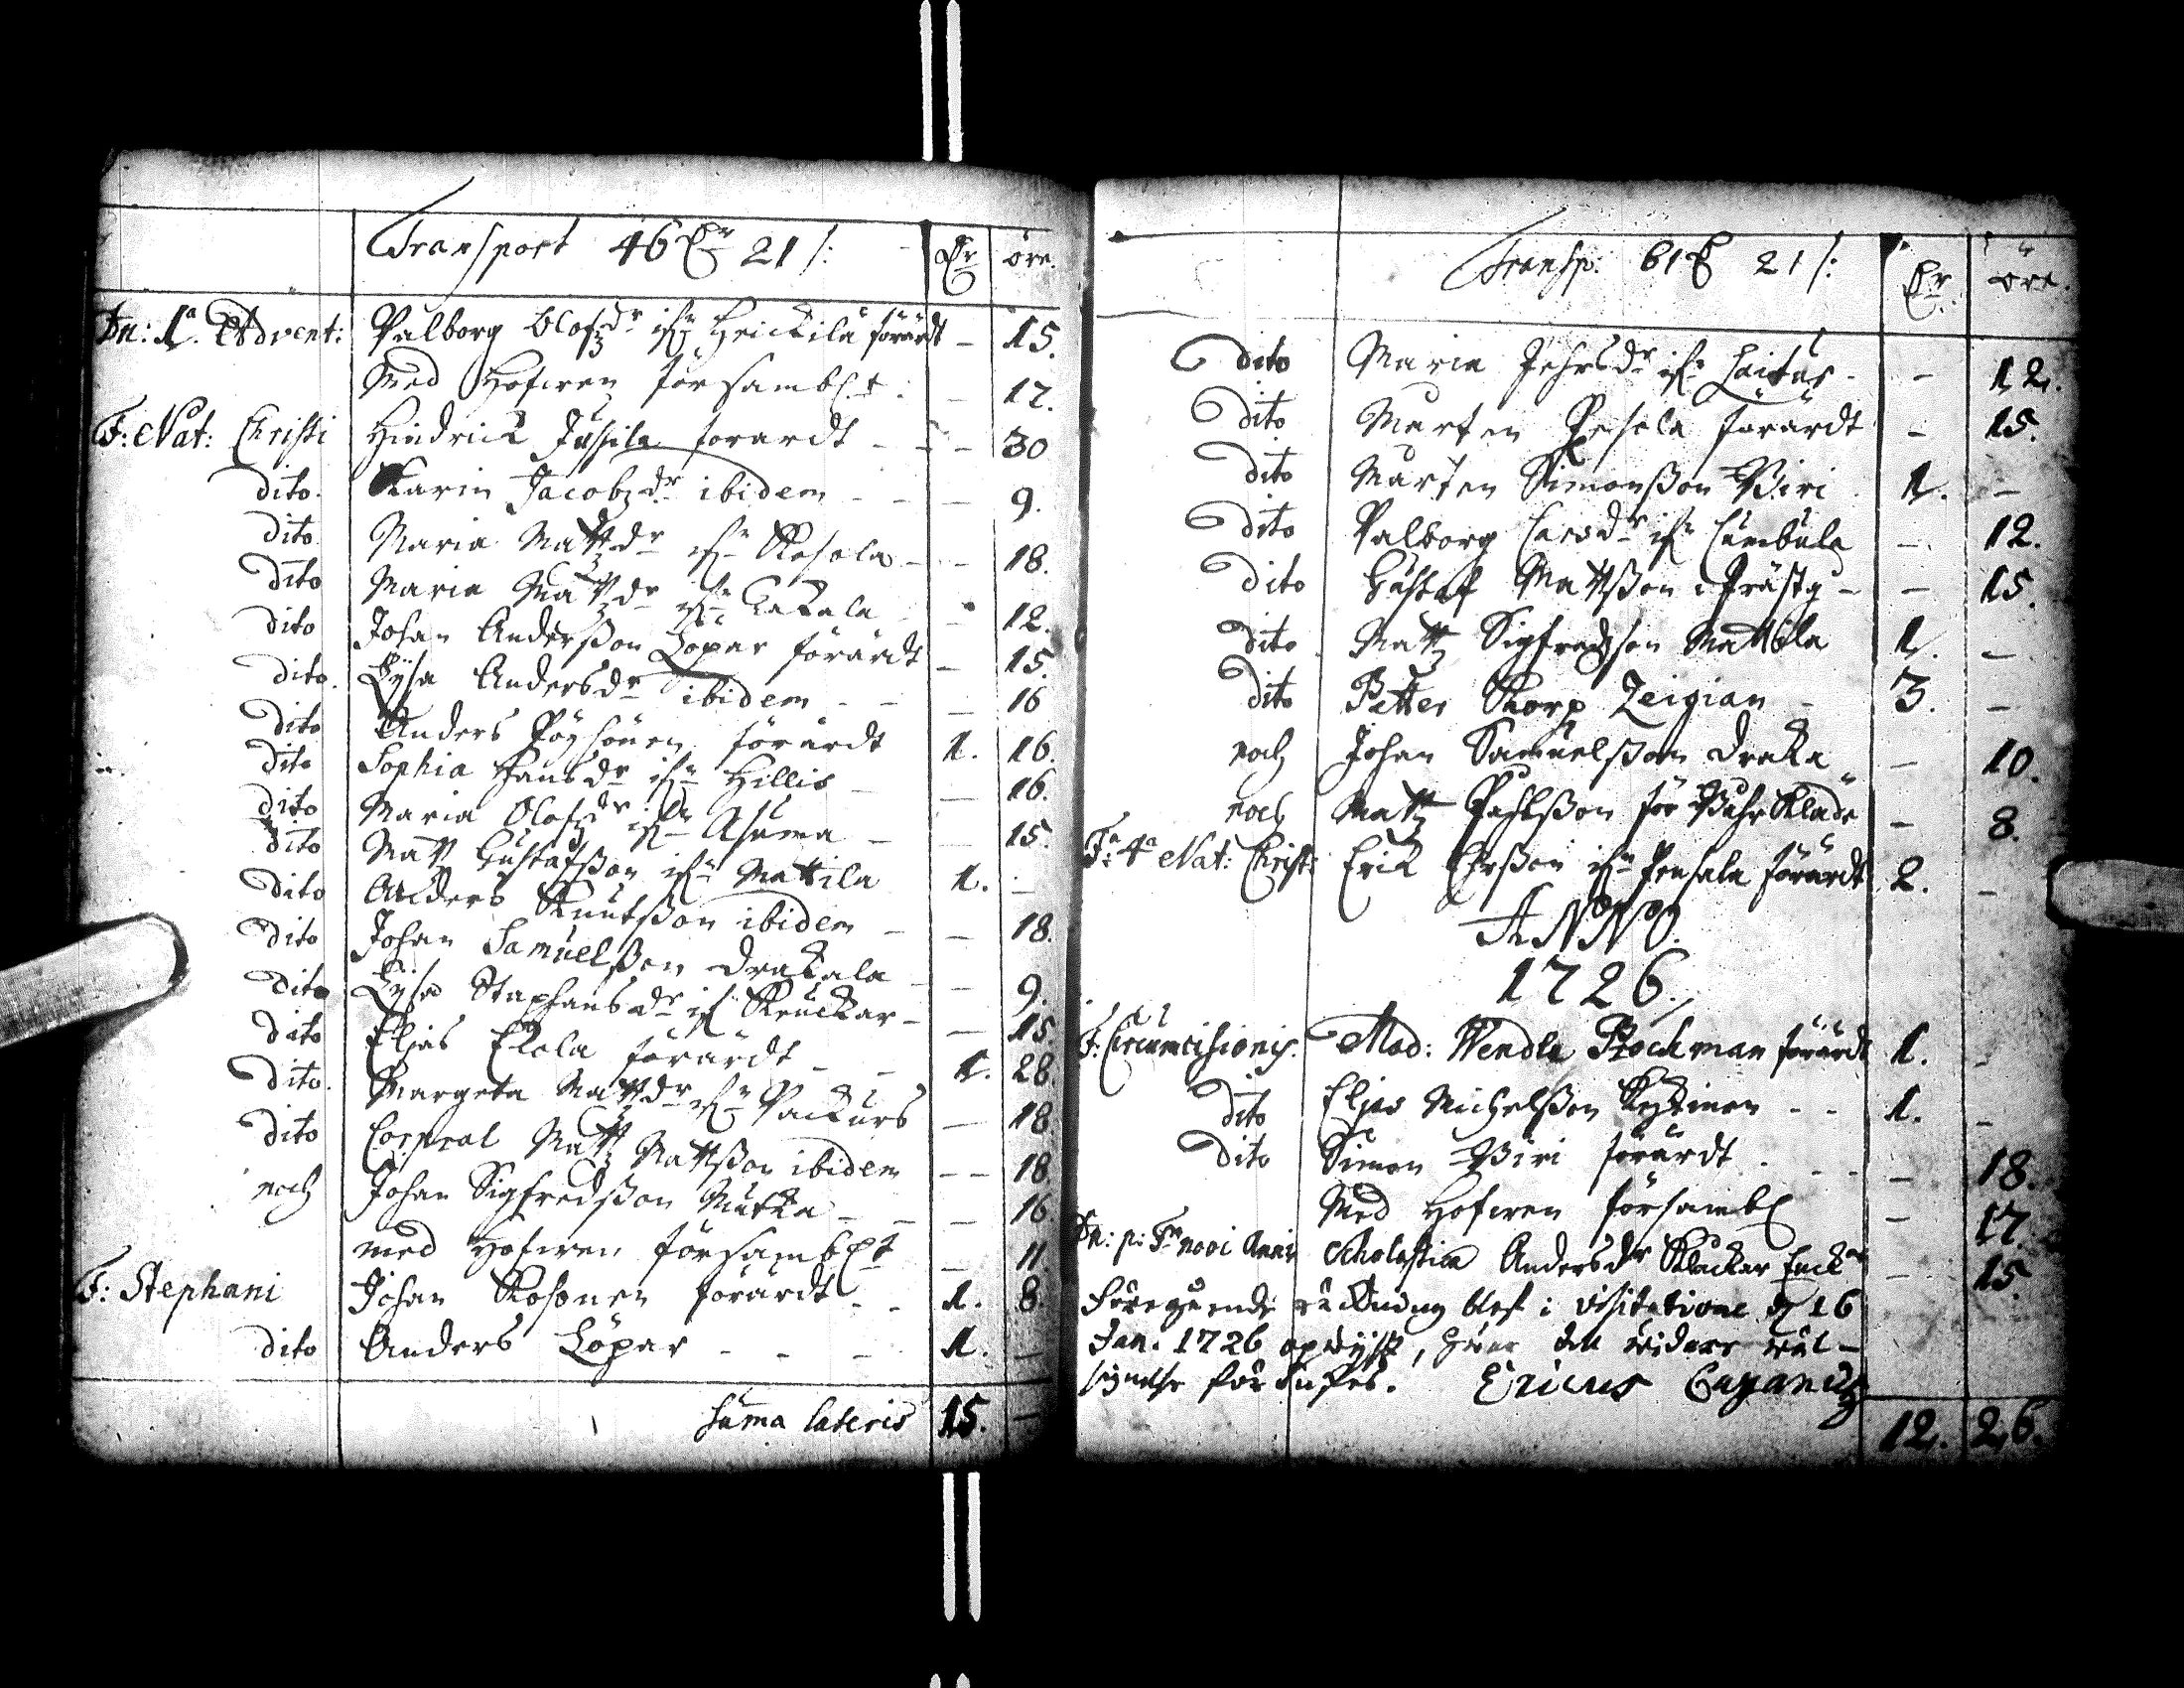 Transport 46 Dr 21 /: Dr öre.
Dn: 1a Advent: Valborg Olofzdr ifrn Heickilä förärdt – 15.
Med Hofwen församblt – 17.
F: Nat: Christi Hindrich Jussila förärdt – – – 30
dito Karin Jacobzdr ibidem – – – 9.
dito Maria Mattzdr ifrn Kosola – – 18.
dito Maria Mattzdr ifrn Cakala – 12.
dito Johan Andersson Löpar förärdt – 15.
dito Lysa Andersdr ibidem – – – 16
dito Anders Pöysönen förärdt 1. 16.
dito Sophia Hansdr ifrn Hillis – – 16.
dito Maria Olofzdr ifrn Asuma – – 15.
dito Matt Gustafsson ifrn Mattila 1. –
dito Anders Knutsson ibidem – – 18.
dito Johan Samuelsson Drakala – – 9.
dito Lysa Staphansdr if Kruckar – – 15.
dito Eljas Elola förärdt – – 1. 28.
dito Margeta Mattzdr ifrn Packurs – 18
dito Corpral Mattz Mattsson ibidem – – 18
noch Johan Sigfredsson Mutka – – – 16.
med Hofwen församblt – 11.
F: Stephani Johan Kosonen förärdt – – 1. 8.
dito Anders Löpar – – – 1. –
Suma lateris 15. –
Transp: 61 D 21 /: Dr. öre.
dito Maria Jehrsdr ifrn Laitus – – 12.
dito Mårten Pesola förärdt – 15.
dito Mårten Simonsson Wiri 1. –
dito Valborg Larsdr ifrn Cumbula – 12.
dito Gustaf Mattsson i Prästg – – 15.
dito Mattz Sigfredsson Mattila 1. –
dito Petter Korp Zeigian – 3. –
noch Johan Samuelsson Draka – 10.
noch Mattz Påhlsson för Wåhrkläde – 8.
Fa: 4a Nat: Christi Erik Ehrsson ifrn Pensala förärdt 2. –
ANNO.
1726.
F. Circumcisionis. Mad: Wendla Brockman förärdt 1. –
dito Eljas Michelsson Kytinen – – 1. –
dito Simon Wiri förärdt – – – – 18.
Med Hofwen försambl – 17.
Dn: p: Fm novi Anni Scholastica Andersdr Klackar Enka – 15.
Föregående räkning blef i visitatione d 16
Jan. 1726 opläst, hwar den widare wäl-
Ericus Cajanus
12. 26.